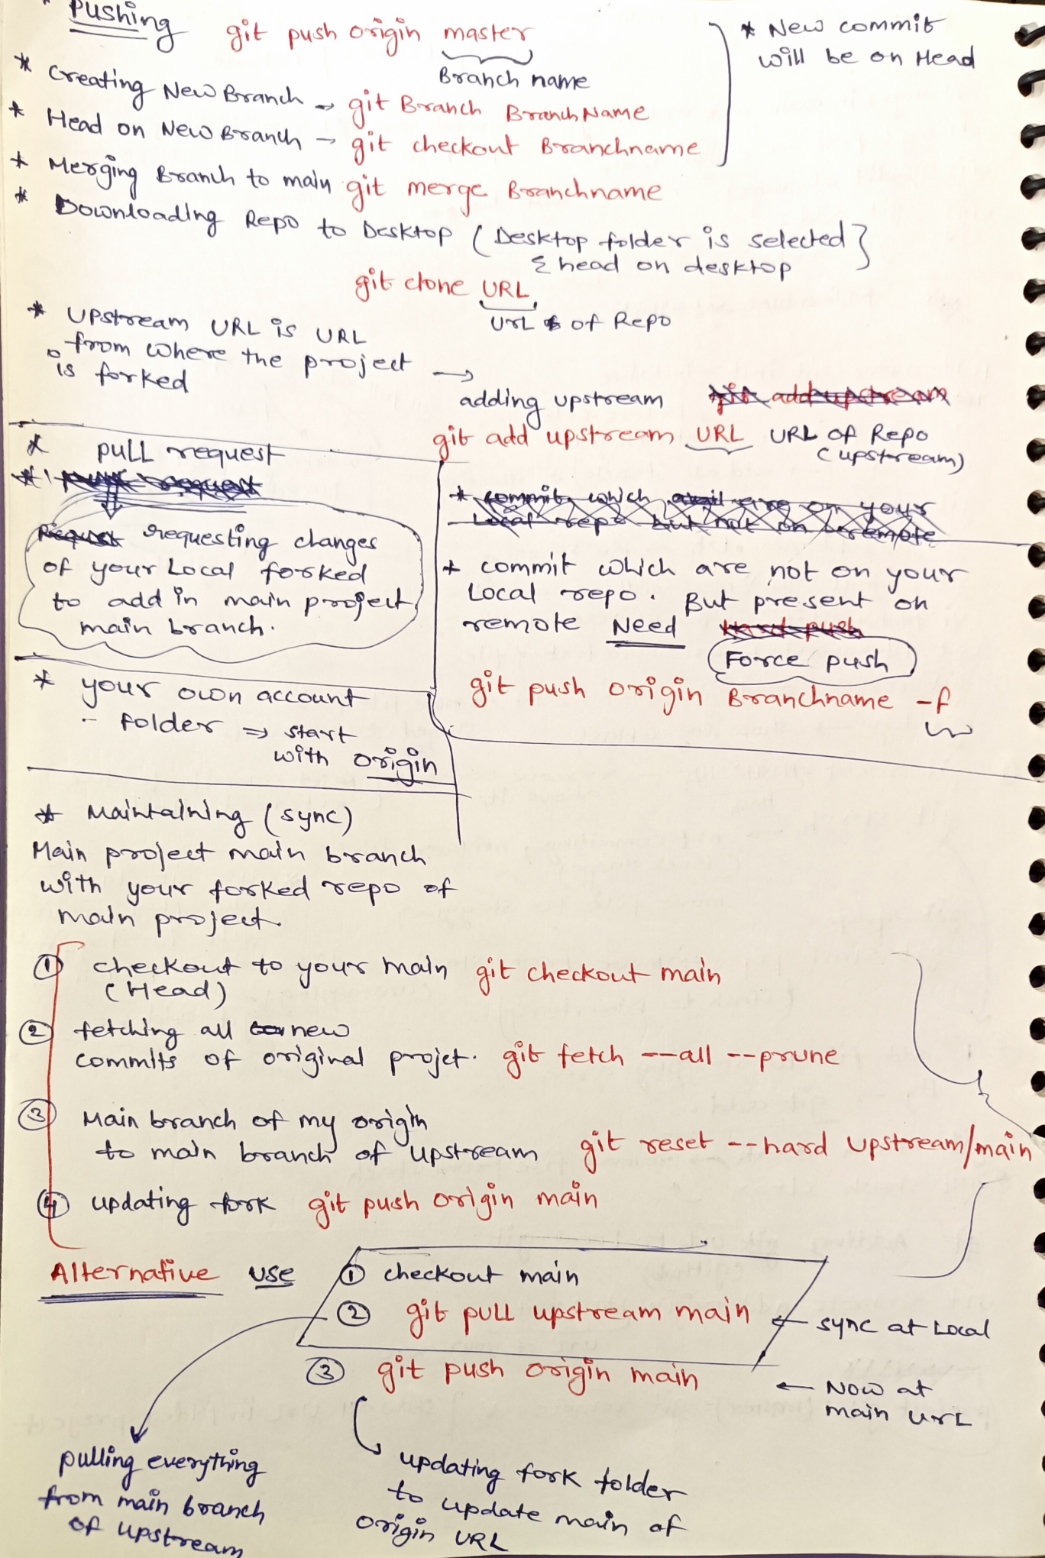 * Pushing git push origin master
Branch name
* New commit
will be on Head
* Creating New Branch → git Branch BranchName
* Head on New Branch → git checkout Branchname
* Merging Branch to main git merge Branchname
* Downloading Repo to Desktop ( Desktop folder is selected }
& head on desktop
git clone URL
URL of Repo
* Upstream URL is URL
from where the project
is forked →
adding upstream git add upstream
git add upstream URL URL of Repo
(upstream)
* pull request
* pull request
Request requesting changes
of your Local forked
to add in main project
main branch.
* commit which are on your
Local repo but not on remote
* commit which are not on your
Local repo. But present on
remote Need Hard push
Force push
git push origin Branchname -f
* your own account
- folder ⇒ start
with origin
* Maintaining (sync)
Main project main branch
with your forked repo of
main project.
① checkout to your main git checkout main
(Head)
② fetching all new
commits of original projet. git fetch --all --prune
③ Main branch of my origin
to main branch of upstream git reset --hard upstream/main
④ updating fork git push origin main
Alternative use ① checkout main
② git pull upstream main ← sync at Local
③ git push origin main ← Now at
main URL
pulling everything
from main branch
of upstream
updating fork folder
to update main of
origin URL